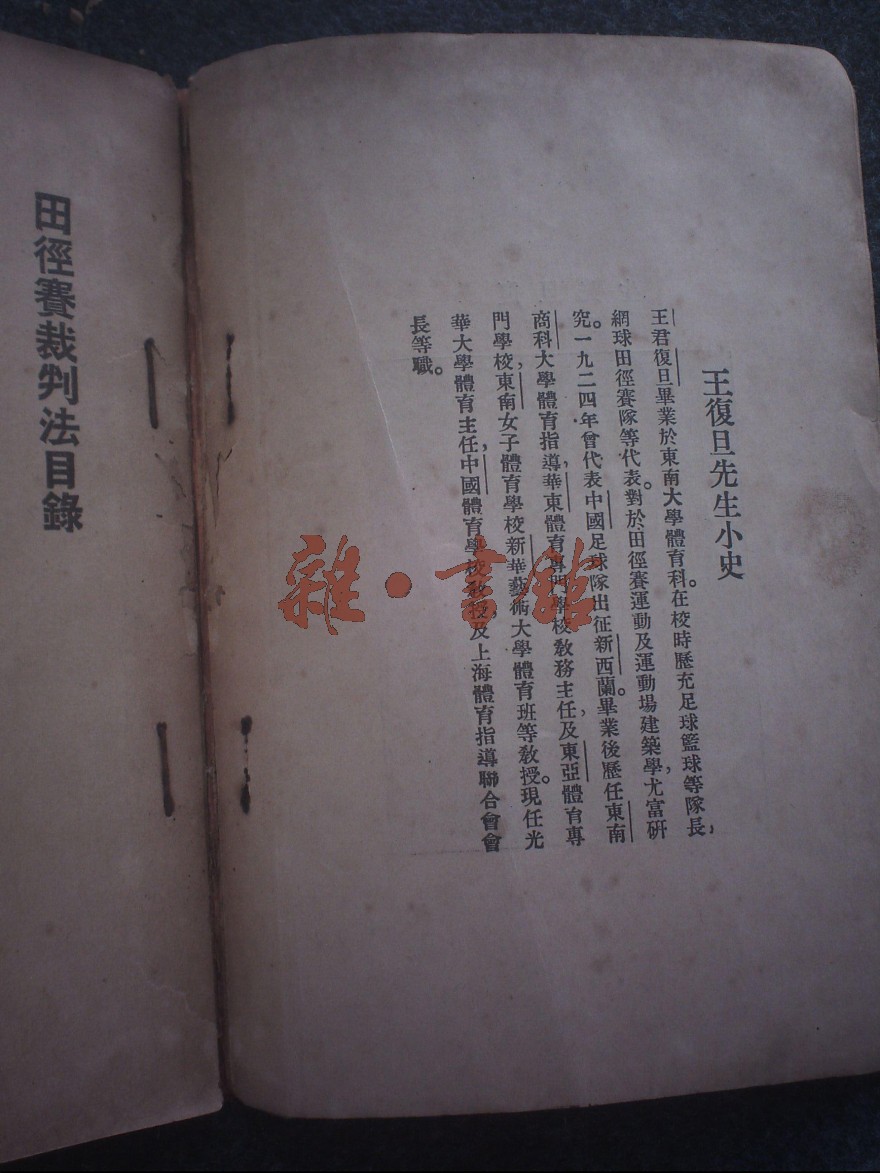 王復旦先生小史
王君復旦畢業於東南大學體育科。在校時歷充足球籃球等隊長,
網球田徑賽隊等代表。對於田徑賽運動及運動場建築學,尤富研
究。一九二四年曾代表中國足球隊出征新西蘭。畢業後歷任東南
商科大學體育指導,華東體育專門學校教務主任,及東亞體育專
門學校,東南女子體育學校新華藝術大學體育班等教授。現任光
華大學體育主任,中國體育學校教授,及上海體育指導聯合會會
長等職。
田徑賽裁判法目錄
雜·書館